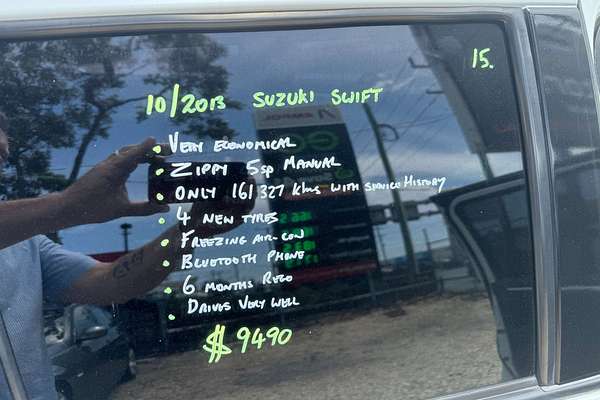 15.
10/2013 SUZUKI SWIFT
• VERY ECONOMICAL
• ZIPPY 5sp MANUAL
• ONLY 161327 klms WITH SERVICE HISTORY
• 4 NEW TYRES
• FREEZING AIR-CON
• BLUETOOTH PHONE
• 6 MONTHS REGO
• DRIVES VERY WELL
$9490